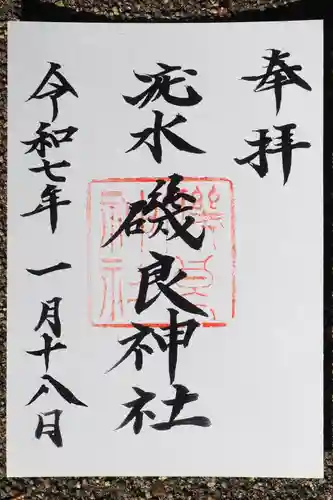 奉拝
疣水磯良神社
令和七年 一月十八日
磯良神社